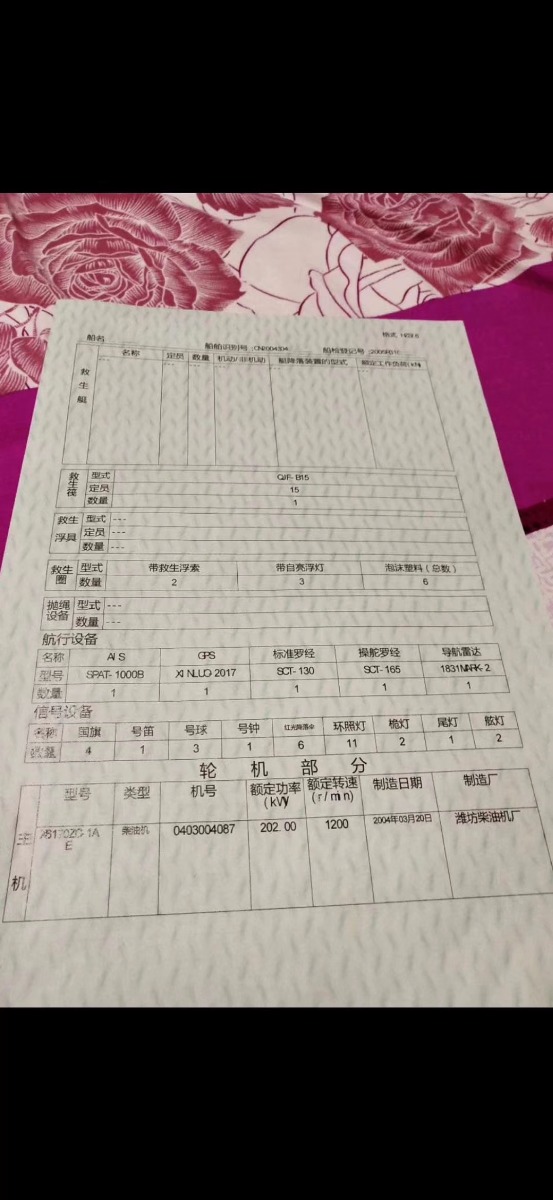 格式
船名 船舶识别号：CN2004304 船检登记号：2005
救生艇 名称 定员 数量 机动/非机动 艇降落装置的型式 额定工作负荷(kN)
--- --- --- --- --- ---
救生筏 型式 QJF-B15
定员 15
数量 1
救生浮具 型式 ---
定员 ---
数量 ---
救生圈 型式 带救生浮索 带自亮浮灯 泡沫塑料(总数)
数量 2 3 6
抛绳设备 型式 ---
数量 ---
航行设备
名称 AIS GPS 标准罗经 操舵罗经 导航雷达
型号 SPAT-1000B XINLUO-2017 SCT-130 SCT-165 1831MARK-2
数量 1 1 1 1 1
信号设备
名称 国旗 号笛 号球 号钟 红光降落伞 环照灯 桅灯 尾灯 舷灯
数量 4 1 3 1 6 11 2 1 2
轮机部分
主机 型号 类型 机号 额定功率(kW) 额定转速(r/min) 制造日期 制造厂
柴油机 0403004087 202.00 1200 2004年03月20日 潍坊柴油机厂